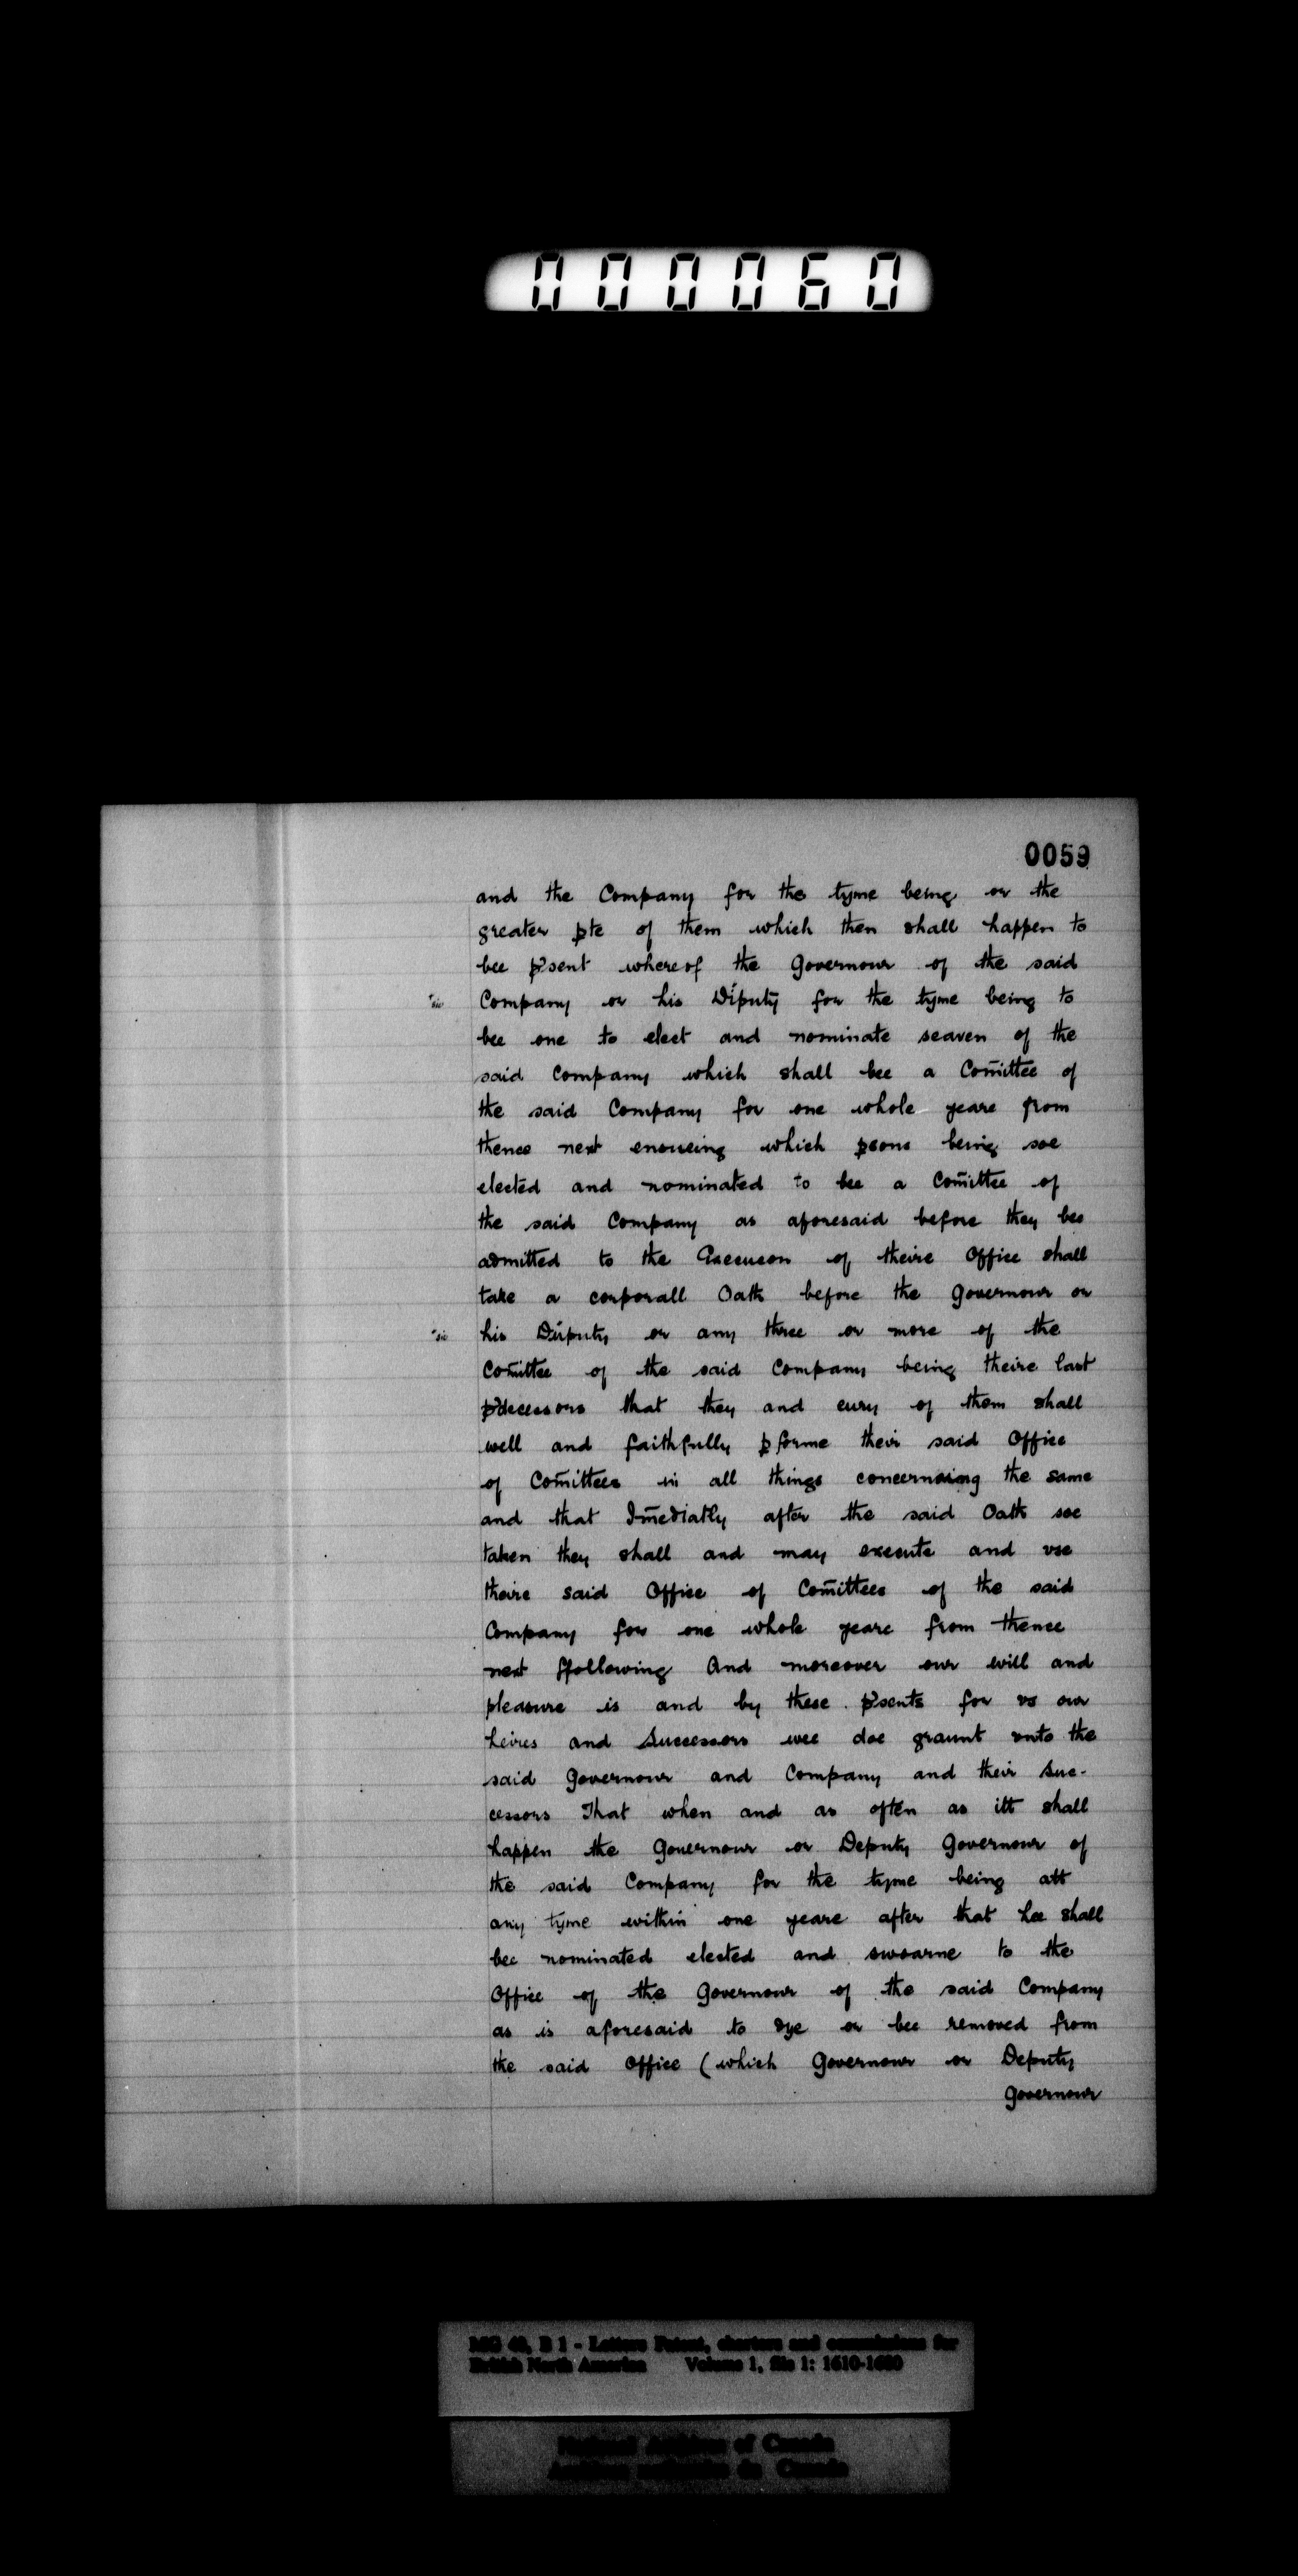 000060
0059
and the Company for the tyme being or the
greater pte of them which then shall happen to
bee p'sent whereof the Governour of the said
"sic Company or his Diputy for the tyme being to
bee one to elect and nominate seaven of the
said Company which shall bee a Com̄ittee of
the said Company for one whole yeare from
thence next ensueing which psons being soe
elected and nominated to bee a Com̄ittee of
the said Company as aforesaid before they bee
admitted to the Execucon of theire Office shall
take a corporall Oath before the Governour or
"sic his Diputy or any three or more of the
Com̄ittee of the said Company being theire last
p'decessors that they and euery of them shall
well and faithfully pforme their said Office
of Com̄ittees in all things concerning the same
and that Im̄ediatly after the said Oath soe
taken they shall and may execute and vse
theire said Office of Com̄ittees of the said
Company for one whole yeare from thence
next ffollowing And moreover our will and
pleasure is and by these p'sents for vs our
heires and Successors wee doe graunt vnto the
said Governour and Company and their Suc-
cessors That when and as often as itt shall
happen the Gouernour or Deputy Governour of
the said Company for the tyme being att
any tyme within one yeare after that hee shall
bee nominated elected and swoarne to the
Office of the Governour of the said Company
as is aforesaid to dye or bee removed from
the said Office (which Governour or Deputy
Governour
MG 40, B 1 - Letters Patent, charters and commissions for
British North America Volume 1, file 1: 1610-1680
National Archives of Canada
Archives nationales du Canada